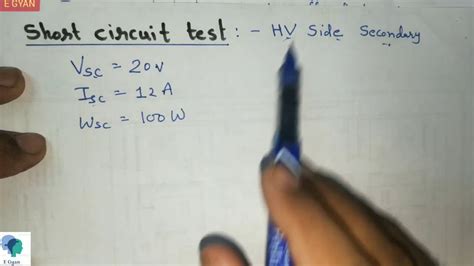 E GYAN
Short circuit test : - HV Side Secondary
Vsc = 20v
Isc = 12A
Wsc = 100W
E Gyan